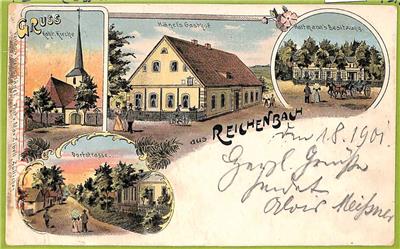 GRUSS
Kath. Kirche
Hänel's Gasthof
Hartmann's Besitzung.
aus REICHENBACH
Dorfstrasse.
den 1.8.1901
Herzl. Grüsse
sendet
Alois Meißner